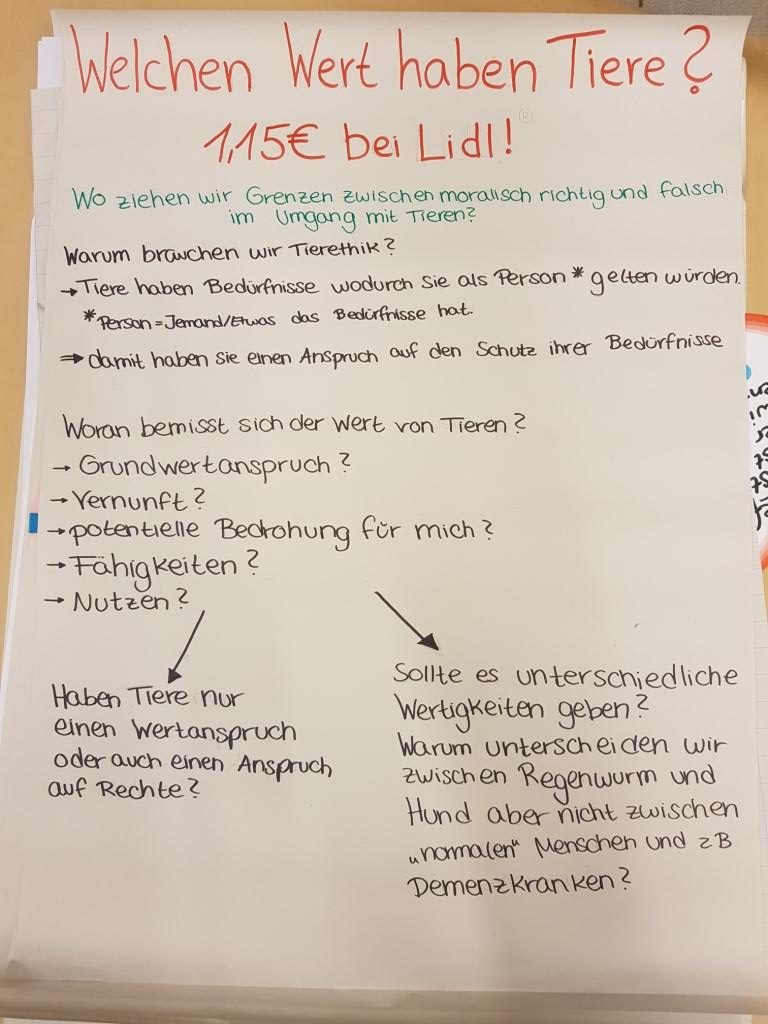 Welchen Wert haben Tiere?
1,15€ bei Lidl!
®
Wo ziehen wir Grenzen zwischen moralisch richtig und falsch
im Umgang mit Tieren?
Warum brauchen wir Tierethik?
→ Tiere haben Bedürfnisse wodurch sie als Person * gelten würden.
*Person = Jemand/Etwas das Bedürfnisse hat.
⇒ damit haben sie einen Anspruch auf den Schutz ihrer Bedürfnisse
Woran bemisst sich der Wert von Tieren?
→ Grundwertanspruch?
→ Vernunft?
→ potentielle Bedrohung für mich?
→ Fähigkeiten?
→ Nutzen?
Haben Tiere nur
einen Wertanspruch
oder auch einen Anspruch
auf Rechte?
Sollte es unterschiedliche
Wertigkeiten geben?
Warum unterscheiden wir
zwischen Regenwurm und
Hund aber nicht zwischen
„normalen“ Menschen und z.B
Demenzkranken?